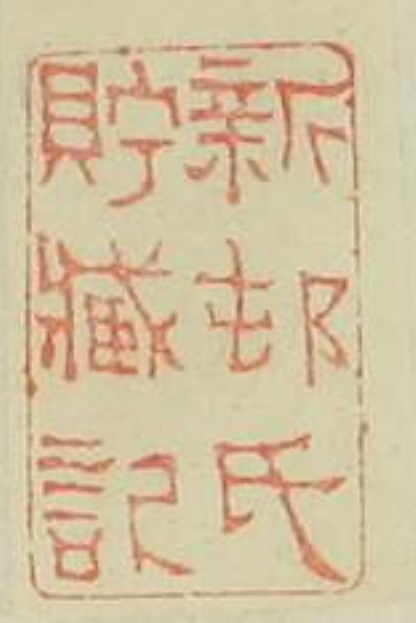 新邨氏
貯蔵記